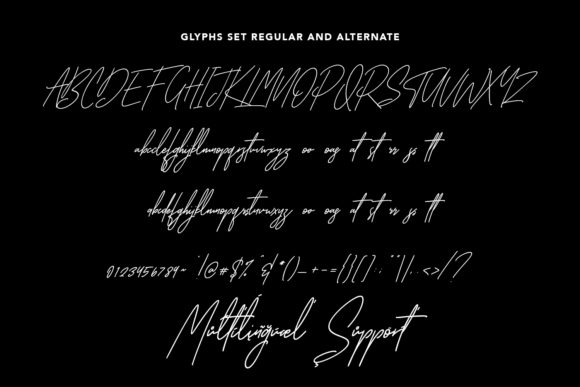 GLYPHS SET REGULAR AND ALTERNATE
ABCDEFGHIJKLMNOPQRSTUVWXYZ
abcdefghijklmnopqrstuvwxyz oo oas at st rr ss tt
abcdefghijklmnopqrstuvwxyz oo oas at st rr ss tt
0123456789~ `!@#$%^&*()_+-={}[]:;"||,.<>/?
Multilingual Support